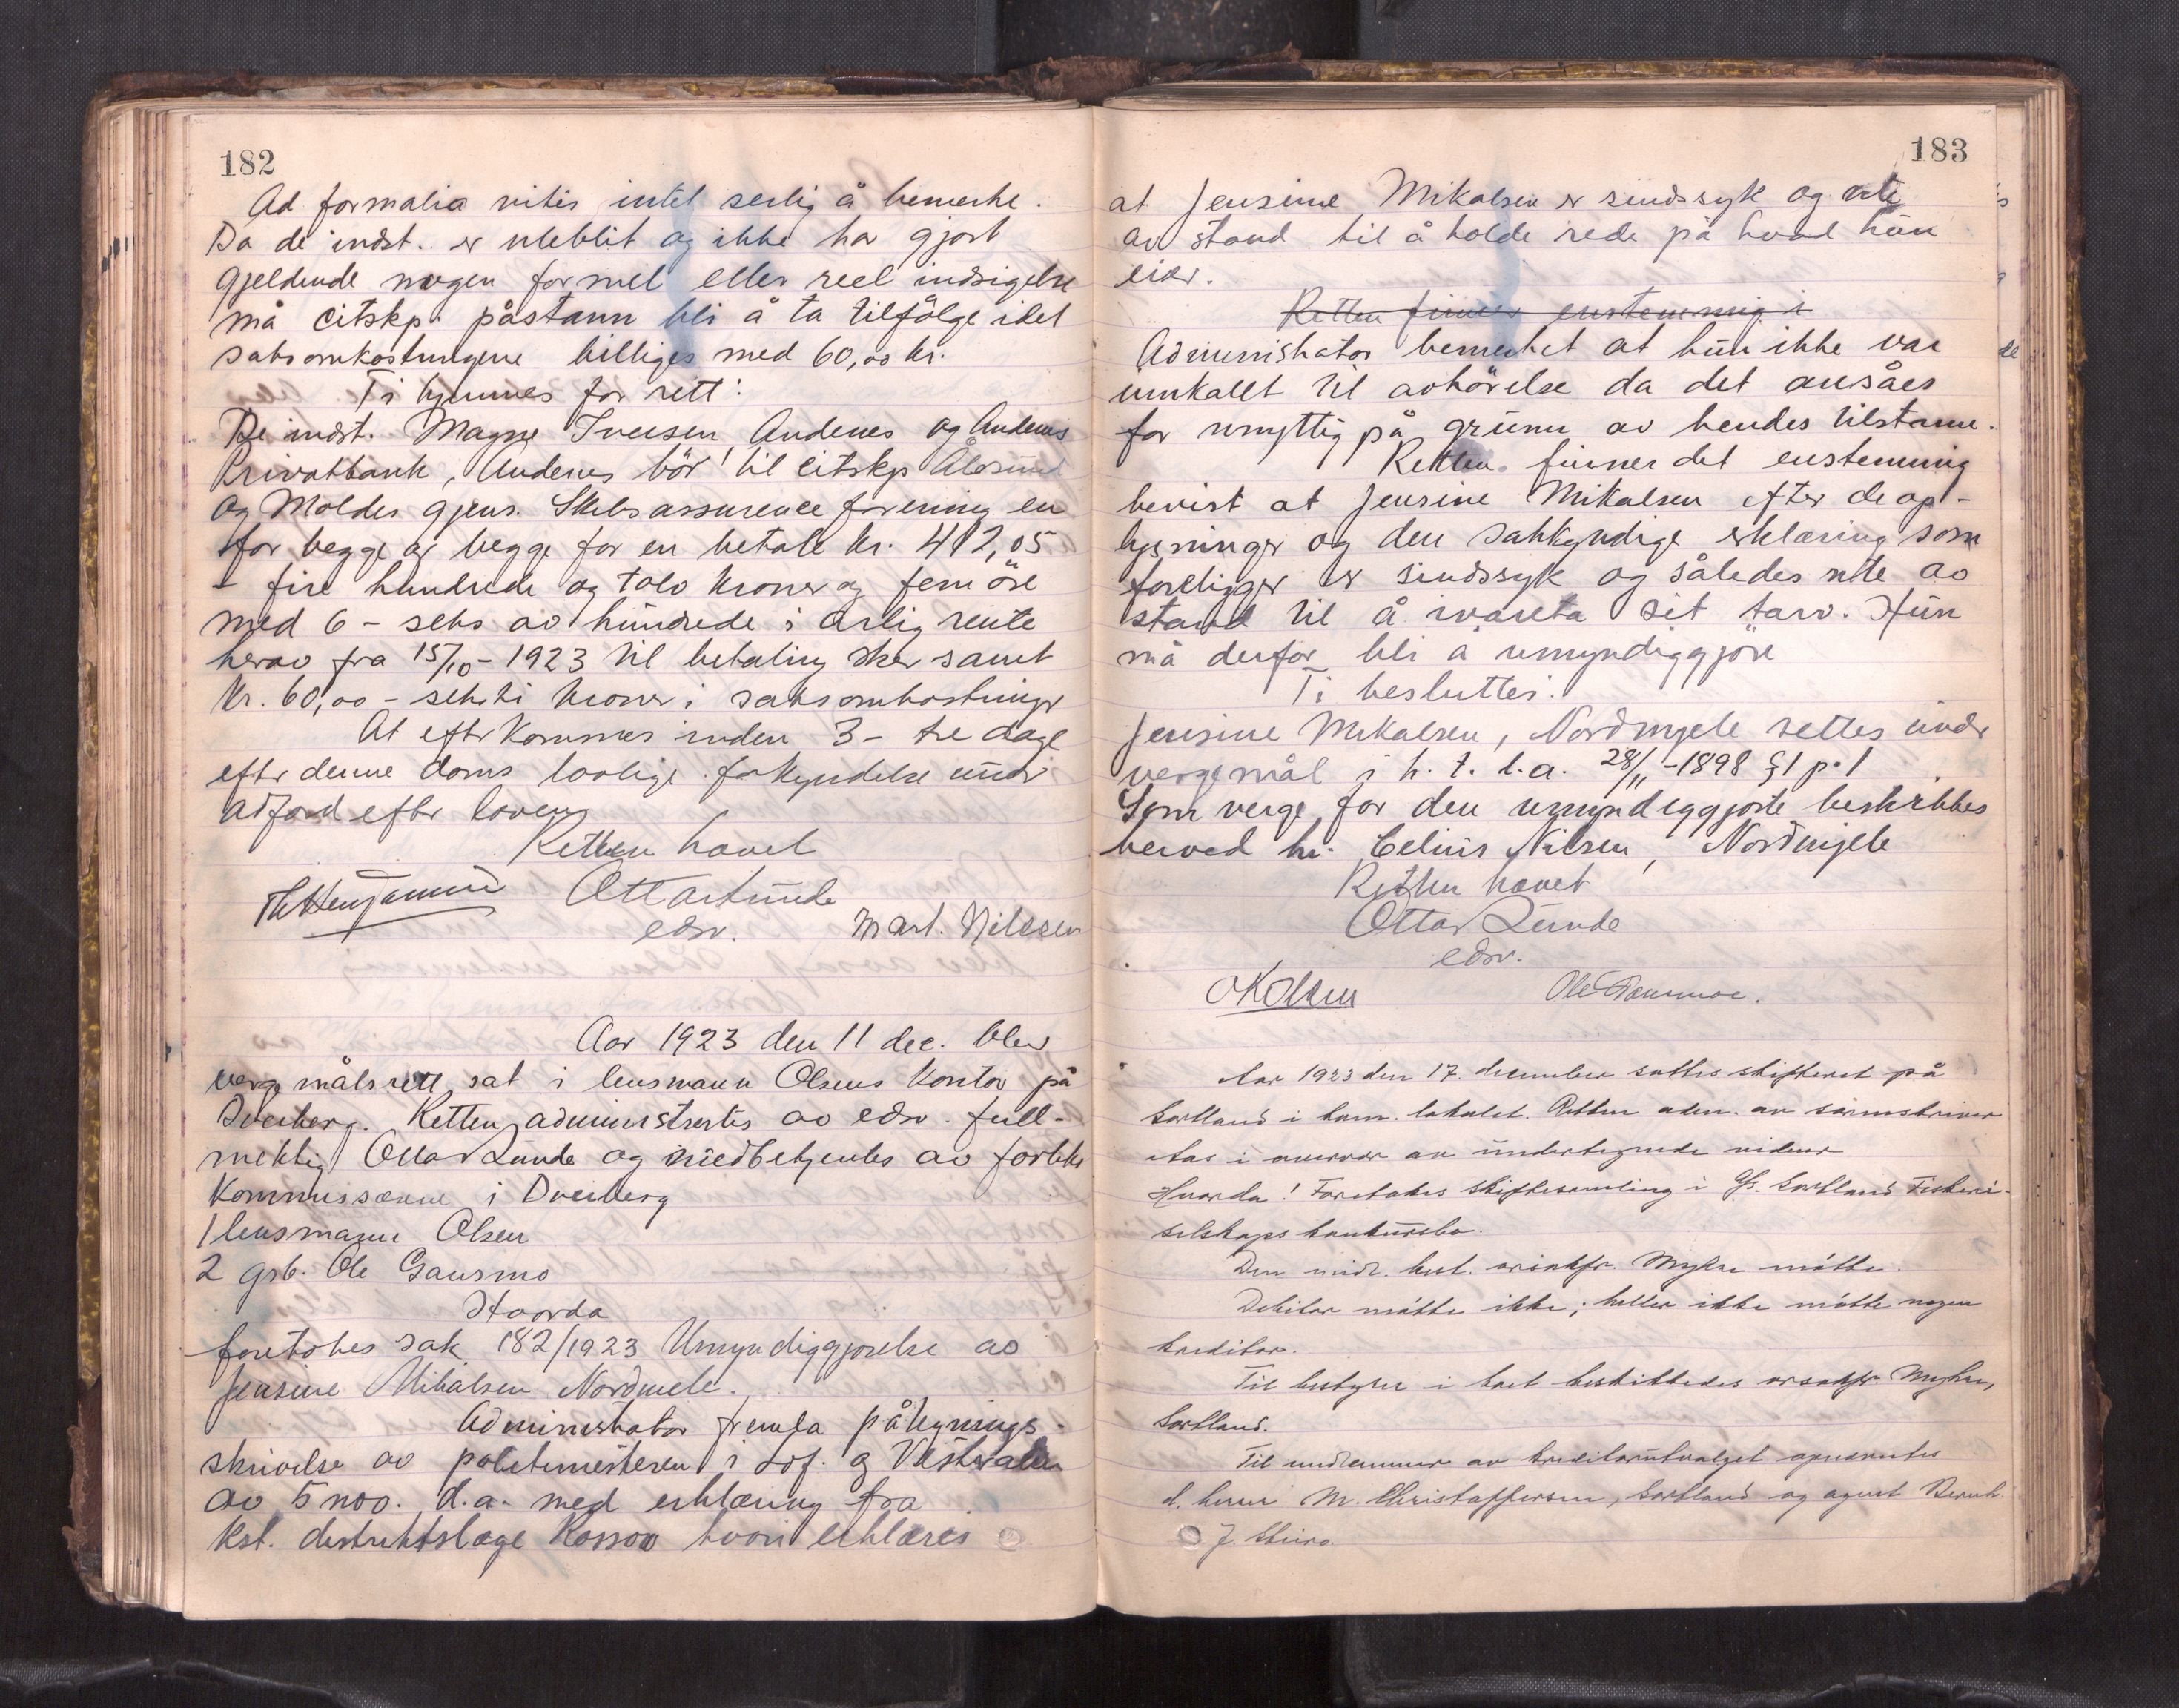 182
Ad formalia vites intet serlig å bemerke.
Da de indst. er uteblit og ikke har gjort
gjeldende nogen formel eller reel indsigelse
må citskp. påstann bli å ta tilfølge idet
saksomkostningene billiges med 60,00 kr.
Ti kjennes for rett:
De indst. Magne Iversen, Andenes og Andenes
Privatbank, Andenes bör til citskp Ålesund
og Moldes gjens. Skibsassurence forening en
for begge og begge for en betale kr. 412,05
- fire hundrede og tolv kroner og fem öre
med 6 - seks av hundrede i årlig rente
herav fra 15/10-1923 til betaling sker samt
kr. 60,00 - seksti kroner i saksomkostninger
At efterkommes inden 3 - tre dage
efter denne doms lovlige forkyndelse under
adførd efter loven
Retten hævet
Ottar Lunde
edsv. Mart. Nilssen
Aar 1923 den 11 dec. blev
vergemålsrett sat i lensmann Olsens kontor på
Dverberg. Retten administrertes av edsv. full-
mektig Ottar Lunde og medbetjentes av forliks
kommissærene i Dverberg
1 lensmann Olsen
2 grb. Ole Gausmo
Hvorda
foretokes sak 182/1923 Umyndiggjørelse av
Jensine Mikalsen Nordmele.
Administrator fremla påkynings-
skrivelse av politimesteren i Lof. og Vesterålen
av 5 nov. d.a. med erklæring fra
kst. distriktslæge Rossow hvori erklæres
183
at Jensine Mikalsen er sindssyk og ute
av stand til å holde rede på hvad hun
eier.
Retten finner enstemmig i
Administrator bemerket at hun ikke var
innkallt til avhörelse da det ansåes
for unyttig på grunn av hendes tilstann.
Retten finner det enstemmig
bevist at Jensine Mikalsen efter de op-
lysninger og den sakkyndige erklæring som
foreligger er sindssyk og således ute av
stand til å ivareta sit tarv. Hun
må derfor bli å umyndiggjöre
Ti besluttes:
Jensine Mikalsen, Nordmjele settes under
vergemål i h. t. l. a. 28/11-1898 §1 p. 1
Som verge for den umyndiggjorte beskikkes
herved hr. Celius Nilsen, Nordmjele
Retten hævet
Ottar Lunde
edsv.
OKOlsen Ole Gausmo.
Aar 1923 den 17. december sattes skifteret på
Sortland i kom. lokalet. Retten adm. av sorenskriver
Aas i nærvær av undertegnede vidner
Hvorda! Foretokes skiftesamling i A/S. Sortland Fiskeri-
selskaps konkursbo.
Den midl. best. orsakfr. Myhre mötte.
Debitor mötte ikke; heller ikke mötte nogen
kreditor.
Til bestyrer i boet beskikkedes orsakfr. Myhre,
Sortland.
Til medlemmer av kreditorutvalget opnævntes
d. herrer M. Christoffersen, Sortland og agent Bernh.